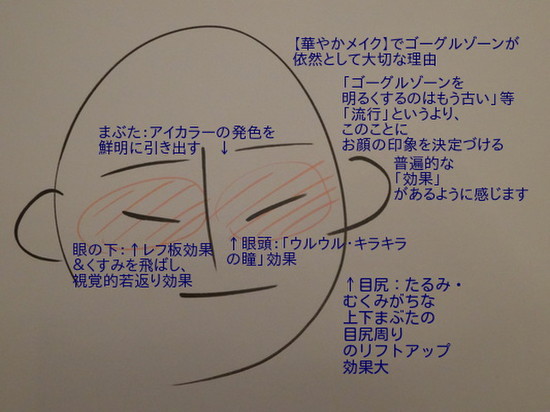 【華やかメイク】でゴーグルゾーンが
依然として大切な理由
「ゴーグルゾーンを
明るくするのはもう古い」等
「流行」というより、
このことに
お顔の印象を決定づける
普遍的な
「効果」
があるように感じます
まぶた：アイカラーの発色を
鮮明に引き出す　↓
眼の下：↑レフ板効果
＆くすみを飛ばし、
視覚的若返り効果
↑眼頭：「ウルウル・キラキラ
の瞳」効果
↑目尻：たるみ・
むくみがちな
上下まぶたの
目尻周り
のリフトアップ
効果大